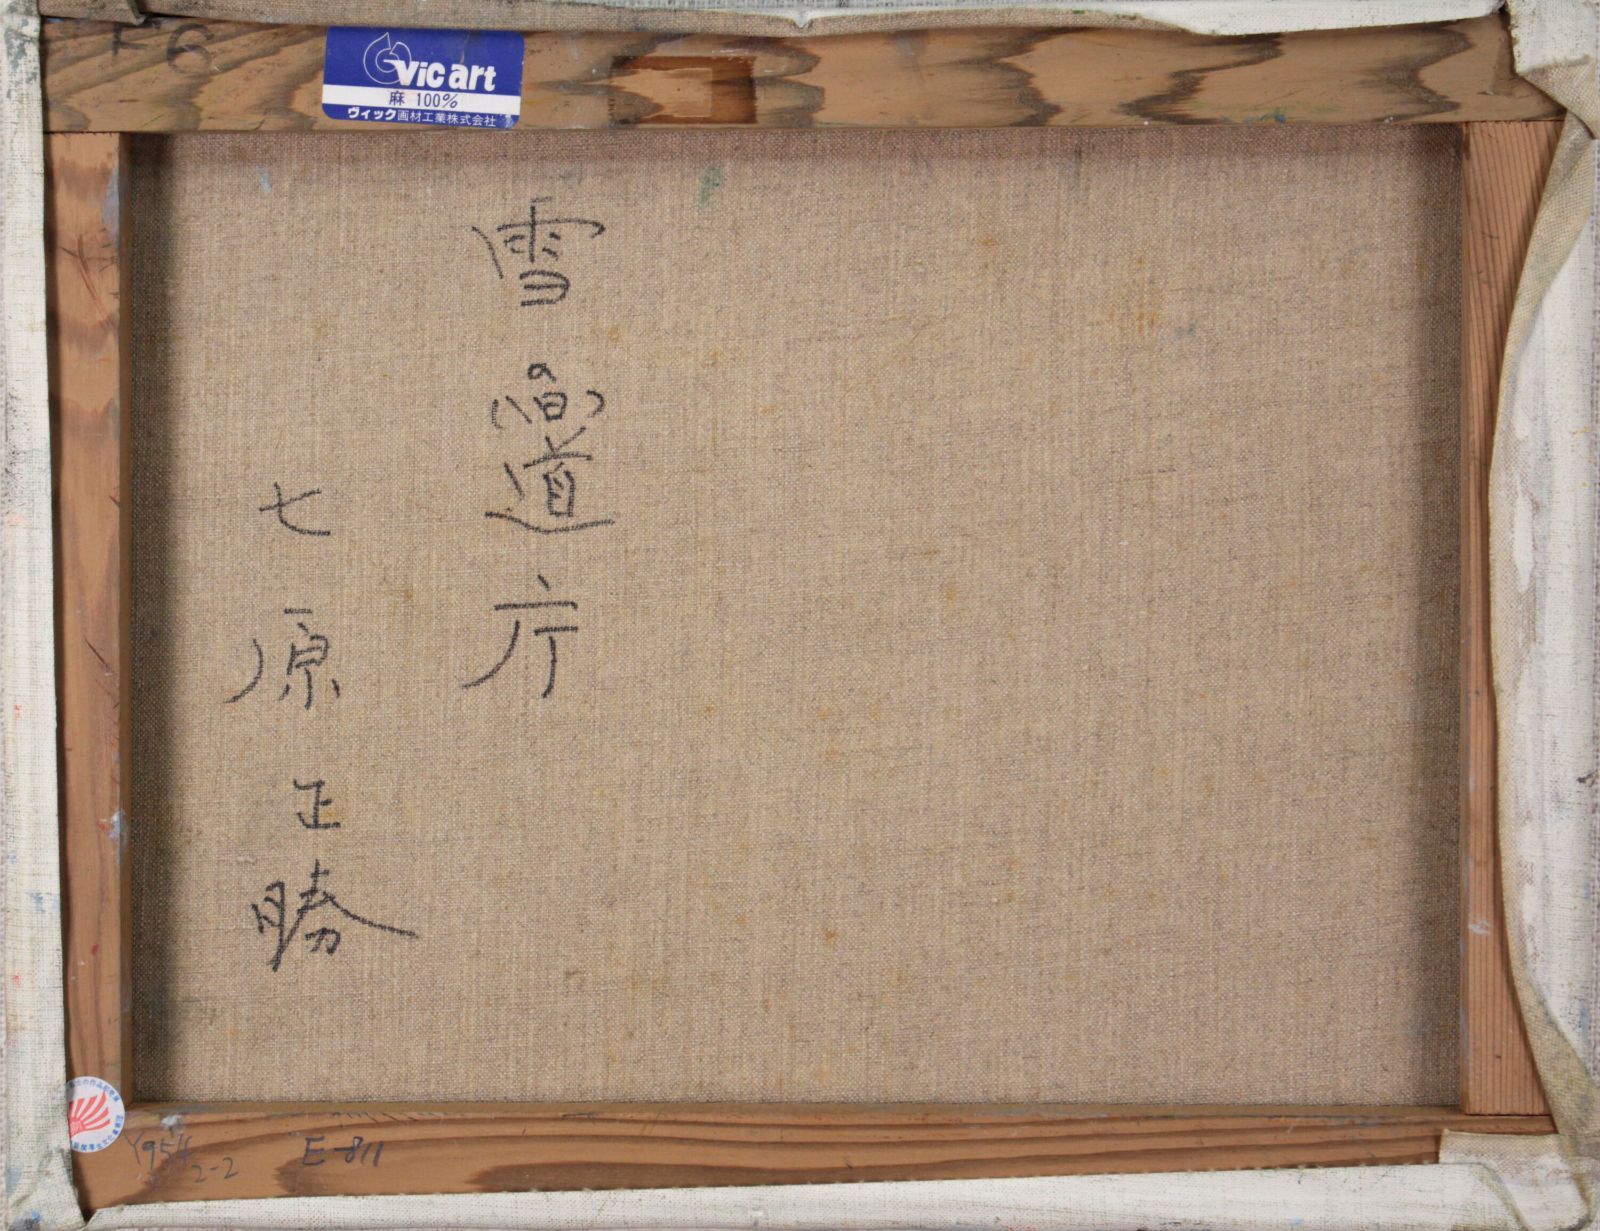 F6
Vic art
麻 100%
ヴィック画材工業株式会社
雪の旧道庁
七原正勝
2-2
E-811